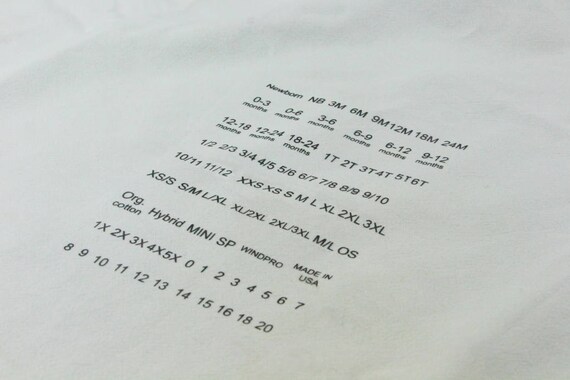 Newborn NB 3M 6M 9M 12M 18M 24M
0-3 months 0-6 months 3-6 months 6-9 months 6-12 months 9-12 months
12-18 months 12-24 months 18-24 months 1T 2T 3T 4T 5T 6T
1/2 2/3 3/4 4/5 5/6 6/7 7/8 8/9 9/10
10/11 11/12 XXS XS S M L XL 2XL 3XL
XS/S S/M L/XL XL/2XL 2XL/3XL M/L OS
Org. cotton Hybrid MINI SP WINDPRO MADE IN USA
1X 2X 3X 4X 5X 0 1 2 3 4 5 6 7
8 9 10 11 12 13 14 15 16 18 20